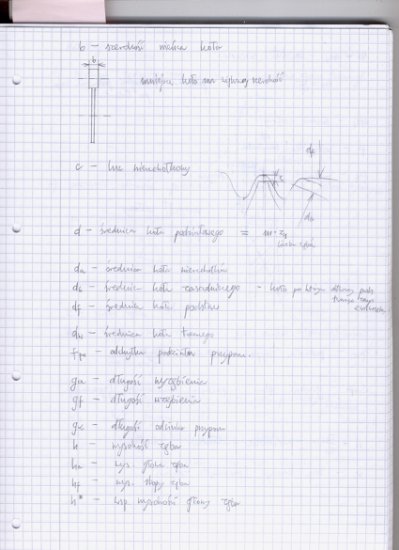 b - szerokość wieńca koła
b
mniejsze koło ma większą szerokość
c - luz wierzchołkowy
c
df
da
d - średnica koła podziałowego = m · z
liczba zębów
da - średnica koła wierzchołków
db - średnica koła zasadniczego - koło po którym
df - średnica koła podstaw
dw - średnica koła tocznego
fpe - odchyłka podziałki przypor.
ga - długość wyzębienia
gf - długość wzębienia
gα - długość odcinka przyporu
h - wysokość zęba
ha - wys. głowy zęba
hf - wys. stopy zęba
h* - wsp. wysokości głowy zęba